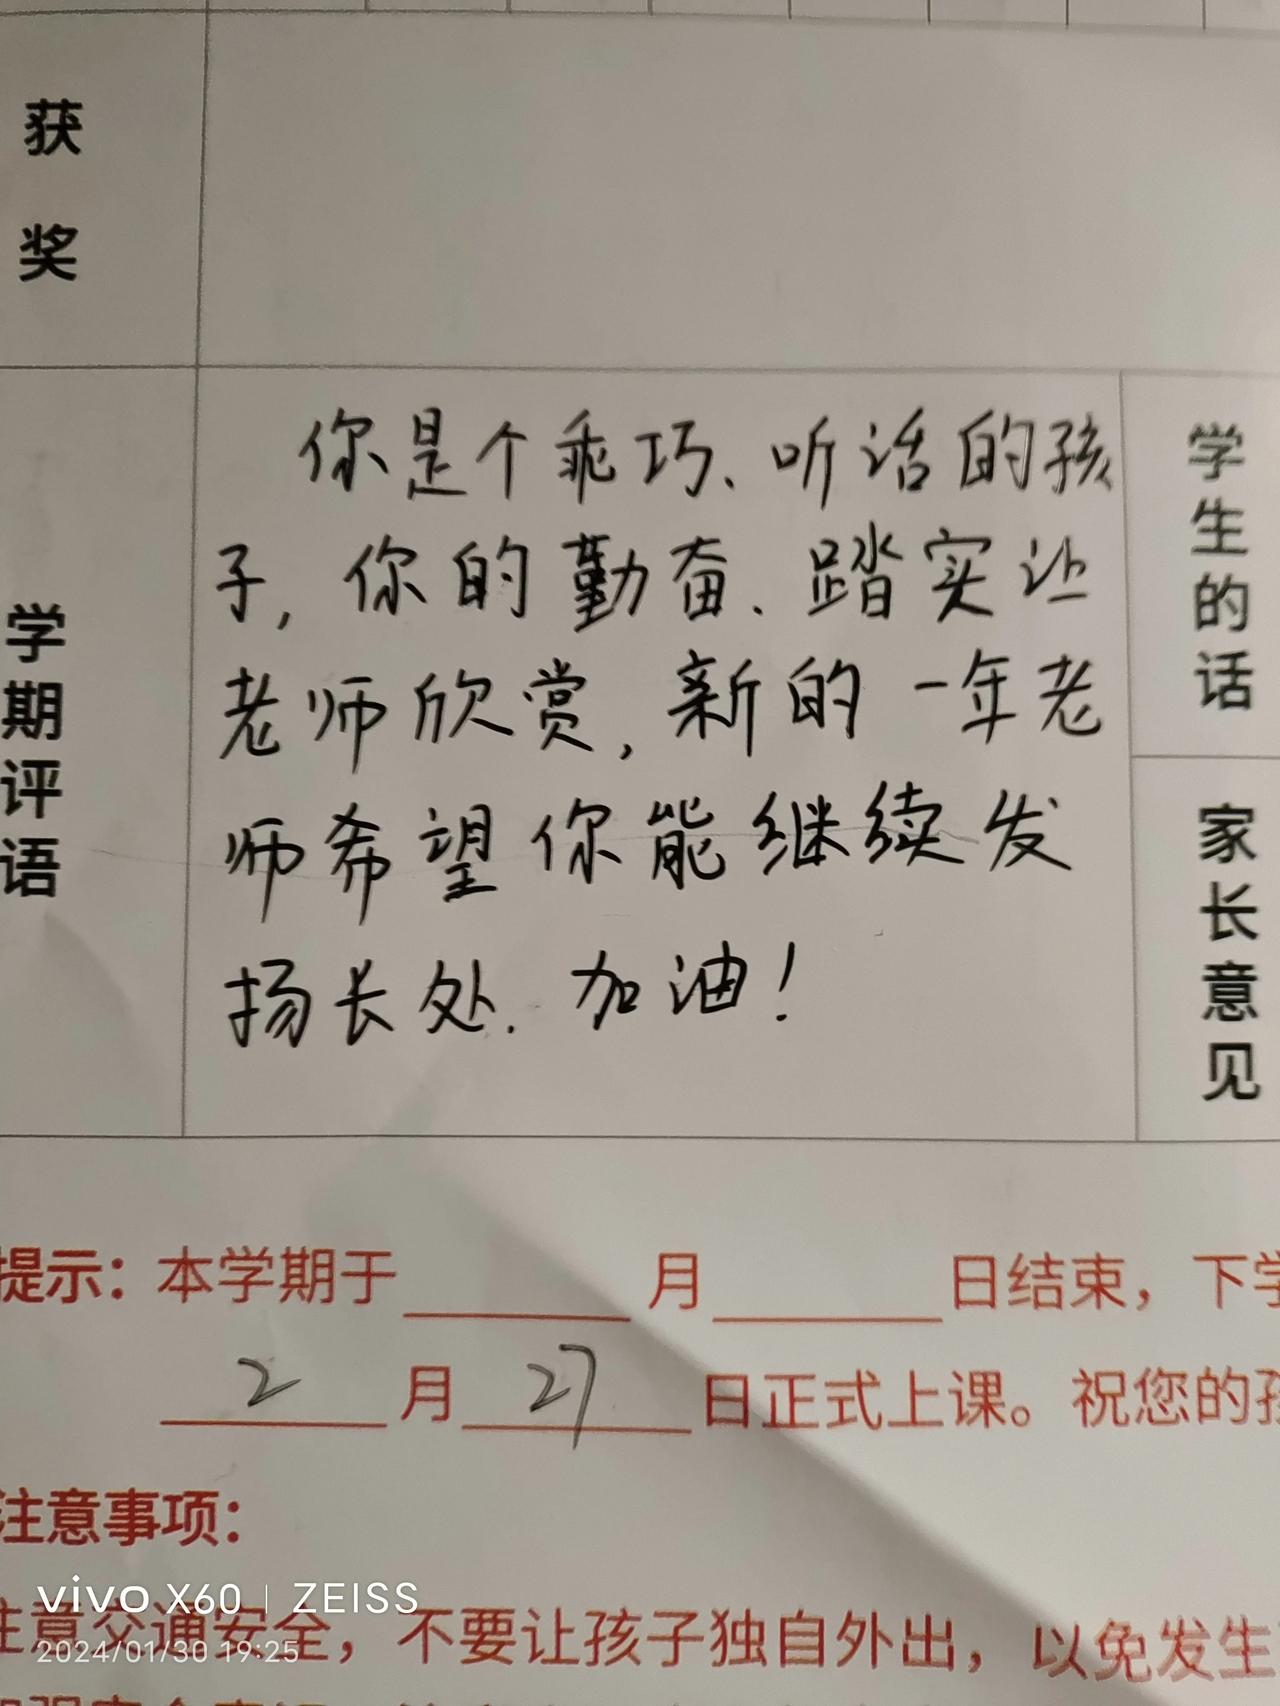 获
奖
学期评语
你是个乖巧、听话的孩
子，你的勤奋、踏实让
老师欣赏，新的一年老
师希望你能继续发
扬长处.加油！
学生的话
家长意见
提示：本学期于 月 日结束，下学
2月27日正式上课。祝您的孩
注意事项：
注意交通安全，不要让孩子独自外出，以免发生
vivo X60 | ZEISS
2024/01/30 19:25